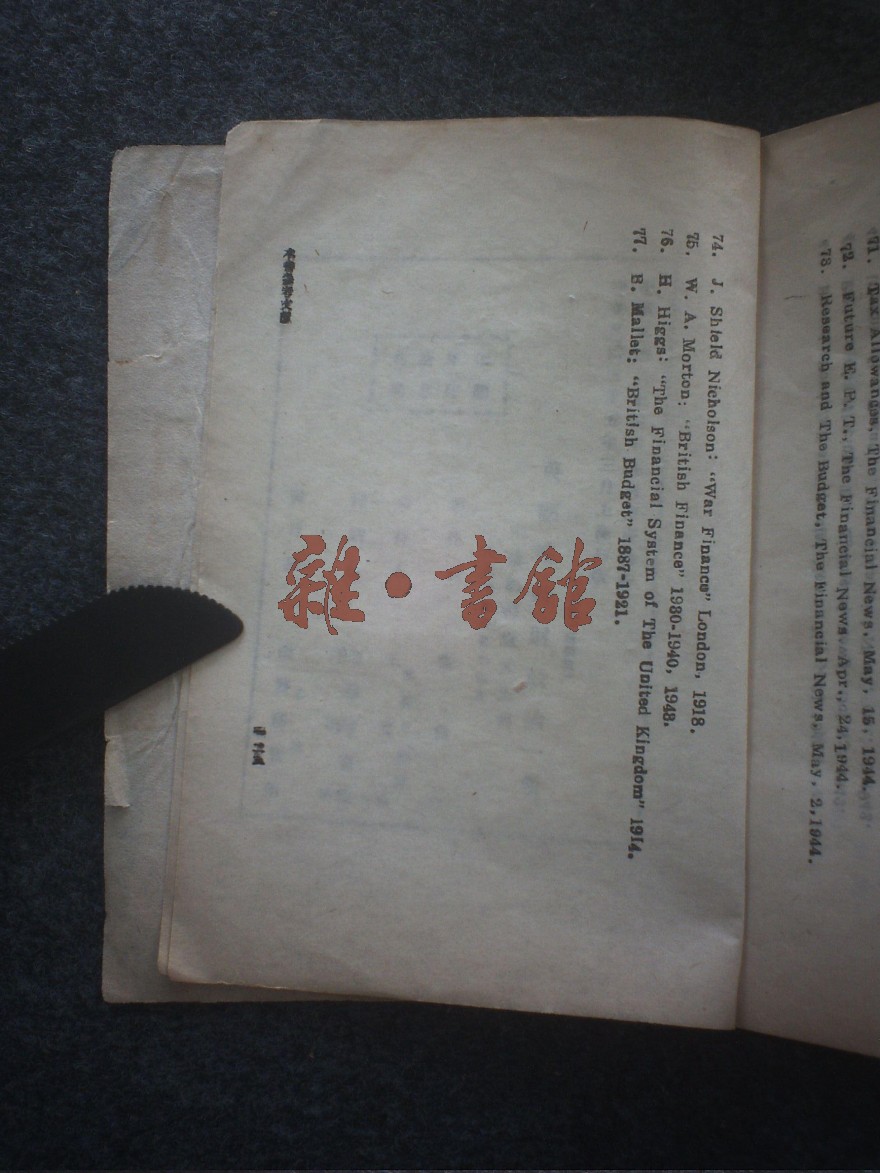 71. Tax Allowances, The Financial News, May, 15, 1944.
72. Future E. P. T., The Financial News, Apr., 24, 1944.
73. Research and The Budget, The Financial News, May, 2, 1944.
74. J. Shield Nicholson: “War Finance” London, 1918.
75. W. A. Morton: “British Finance” 1930-1940, 1943.
76. H. Higgs: “The Financial System of The United Kingdom” 1914.
77. B. Mallet: “British Budget” 1887-1921.
本書參考文獻
雜·書館